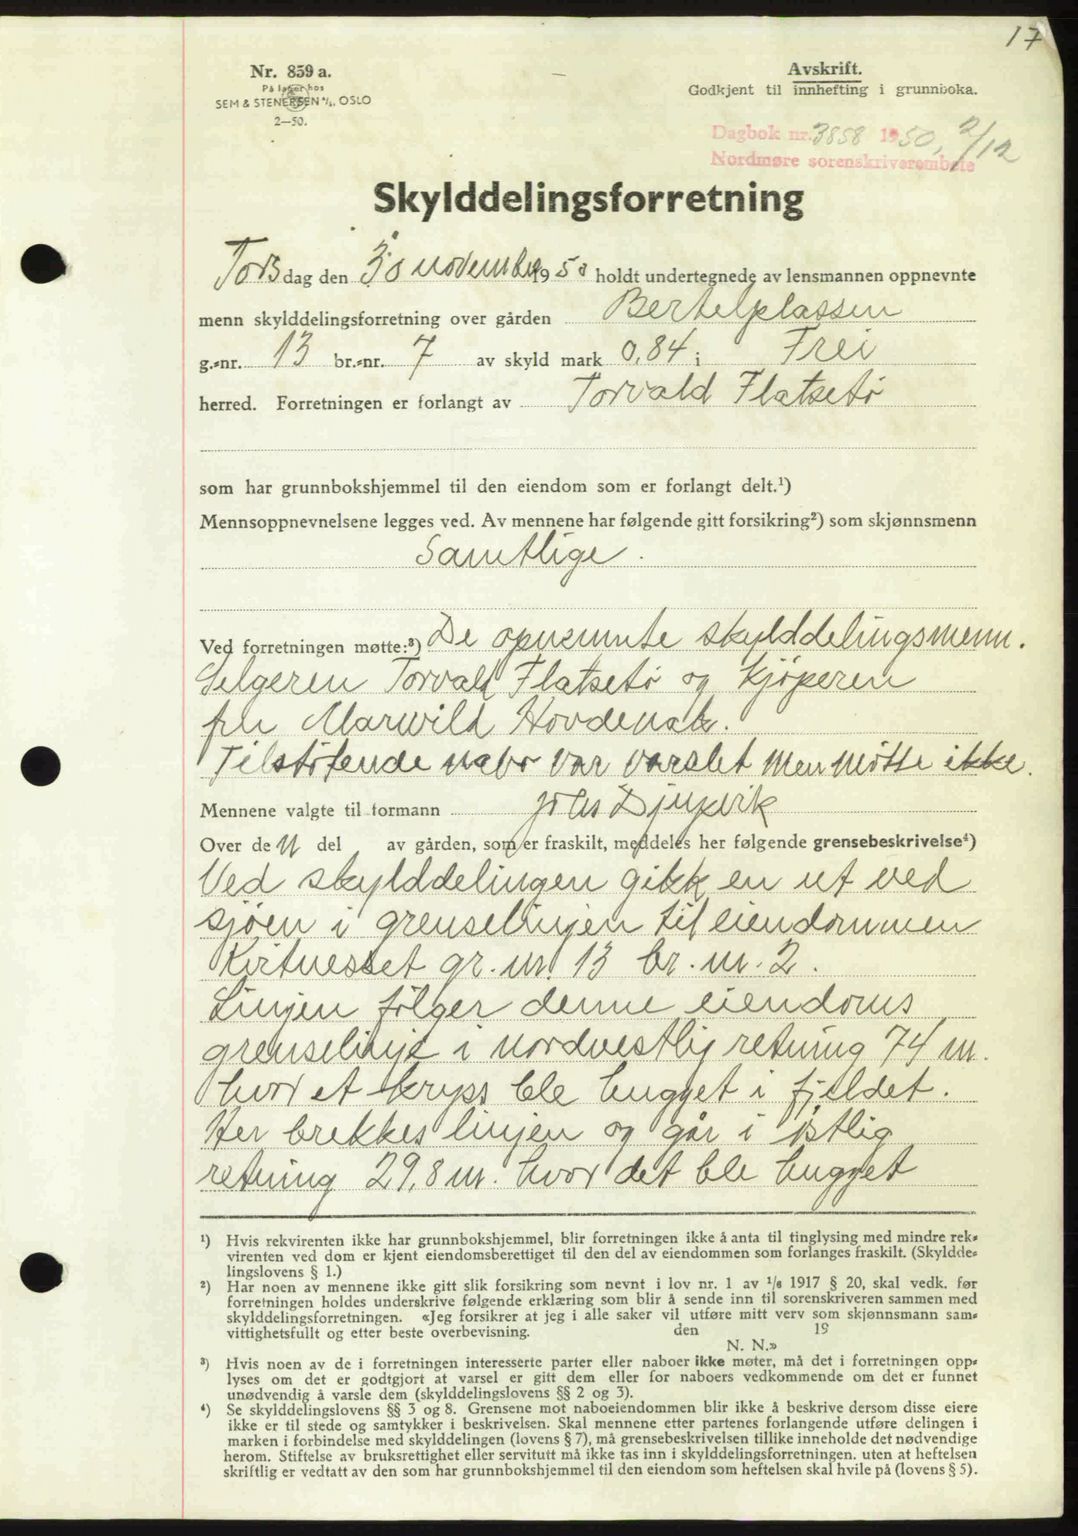 17
Nr. 859 a.
På lager hos
SEM & STENERSEN A/S, OSLO
2—50.
Avskrift.
Godkjent til innhefting i grunnboka.
Dagbok nr. 3858 1950, 2/12
Nordmøre sorenskriverembete
Skylddelingsforretning
Torsdag den 30 november 1950 holdt undertegnede av lensmannen oppnevnte
menn skylddelingsforretning over gården Bertelplassen
g.-nr. 13 br.-nr. 7 av skyld mark 0,84 i Frei
herred. Forretningen er forlangt av Torvald Flatsetö
som har grunnbokshjemmel til den eiendom som er forlangt delt.¹)
Mennsoppnevnelsene legges ved. Av mennene har følgende gitt forsikring²) som skjønnsmenn
Samtlige.
Ved forretningen møtte:³) De opnemnte skylddelingsmenn.
Selgeren Torvald Flatsetö og kjöperen
frk Marwild Hovdenak.
Tilstötende nabo var varslet men mötte ikke.
Mennene valgte til formann Djupvik
Over den del av gården, som er fraskilt, meddeles her følgende grensebeskrivelse⁴)
Ved skylddelingen gikk en ut ved
sjöen i grenselinjen til eiendommen
Kvitnesset gr. nr. 13 br. nr. 2.
Linjen fölger denne eiendoms
grenselinje i nordvestlig retning 74 m.
hvor et kryss ble hugget i fjeldet.
Her brekkes linjen og går i östlig
retning 29,8 m. hvor det ble hugget
¹) Hvis rekvirenten ikke har grunnbokshjemmel, blir forretningen ikke å anta til tinglysing med mindre rek-
virenten ved dom er kjent eiendomsberettiget til den del av eiendommen som forlanges fraskilt. (Skyldde-
lingslovens § 1.)
²) Har noen av mennene ikke gitt slik forsikring som nevnt i lov nr. 1 av 1/6 1917 § 20, skal vedk. før
forretningen holdes underskrive følgende erklæring som blir å sende inn til sorenskriveren sammen med
skylddelingsforretningen. «Jeg forsikrer at jeg i alle saker vil utføre mitt verv som skjønnsmann sam-
vittighetsfullt og etter beste overbevisning. den 19
N. N.»
³) Hvis noen av de i forretningen interesserte parter eller naboer ikke møter, må det i forretningen opp-
lyses om det er godtgjort at varsel er gitt dem eller for naboers vedkommende om det er funnet
unødvendig å varsle dem (skylddelingslovens §§ 2 og 3).
⁴) Se skylddelingslovens §§ 3 og 8. Grensene mot naboeiendommen blir ikke å beskrive dersom disse eiere
ikke er til stede og samtykker i beskrivelsen. Skal mennene etter partenes forlangende utføre delingen i
marken i forbindelse med skylddelingen (lovens § 7), må grensebeskrivelsen tillike inneholde det nødvendige
herom. Stiftelse av bruksrettighet eller servitutt må ikke tas inn i skylddelingsforretningen, uten at heftelsen
skriftlig er vedtatt av den som har grunnbokshjemmel til den eiendom som heftelsen skal hvile på (lovens § 5).